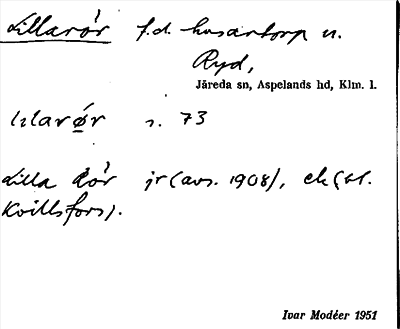 Lillarör f.d. husartorp u.
Ryd,
Järeda sn, Aspelands hd, Klm. l.
lılarør s. 73
Lilla Rör jr (avs. 1908), ek (bl.
Kvillsfors).
Ivar Modéer 1951